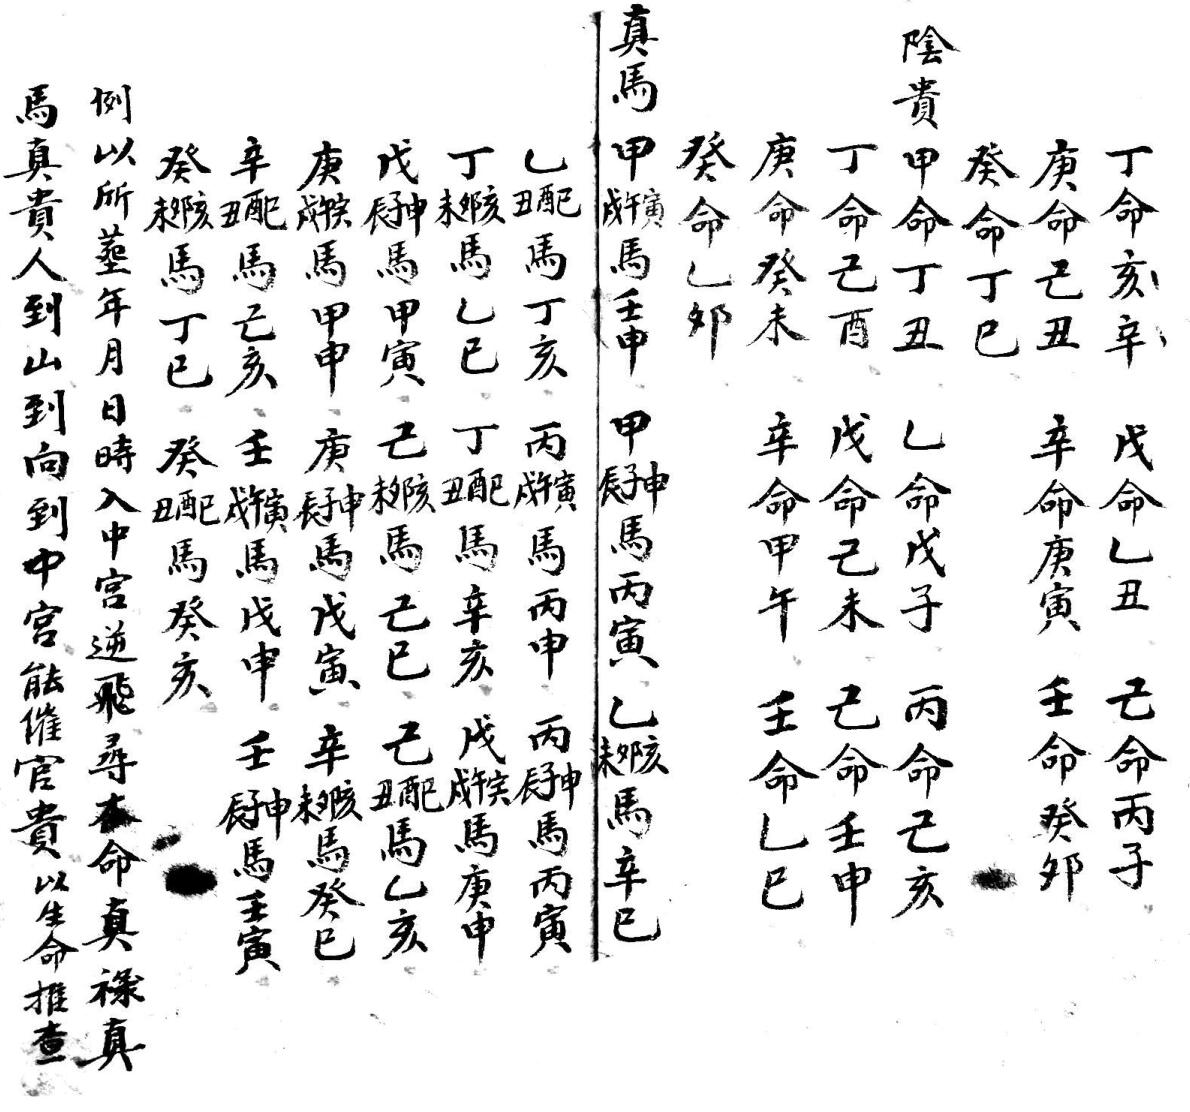 丁命亥辛 戊命乙丑 己命丙子
庚命己丑 辛命庚寅 壬命癸卯
癸命丁巳
陰貴 甲命丁丑 乙命戊子 丙命己亥
丁命己酉 戊命己未 己命壬申
庚命癸未 辛命甲午 壬命乙巳
癸命乙卯
真馬 甲寅午戌馬壬申 甲申子辰馬丙寅 乙亥卯未馬辛巳
乙巳酉丑馬丁亥 丙寅午戌馬丙申 丙申子辰馬丙寅
丁亥卯未馬乙巳 丁巳酉丑馬辛亥 戊寅午戌馬庚申
戊申子辰馬甲寅 己亥卯未馬己巳 己巳酉丑馬乙亥
庚寅午戌馬甲申 庚申子辰馬戊寅 辛亥卯未馬癸巳
辛巳酉丑馬己亥 壬寅午戌馬戊申 壬申子辰馬壬寅
癸亥卯未馬丁巳 癸巳酉丑馬癸亥
例以所塟年月日時入中宮逆飛尋本命真祿真
馬真貴人到山到向到中宮能催官貴以生命推查